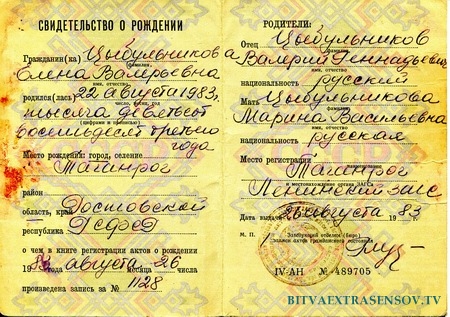 СВИДЕТЕЛЬСТВО О РОЖДЕНИИ
Гражданин(ка) Цыбульникова
фамилия,
Елена Валерьевна
имя, отчество
родился(лась) 22 августа 1983
число, месяц, год
тысяча девятьсот
(цифрами и прописью)
восемьдесят третьего
года
Место рождения: город, селение
Таганрог
район
область, край Ростовской
республика РСФСР
о чем в книге регистрации актов о рождении
1983 года августа месяца 26 числа
произведена запись за № 1128
РОДИТЕЛИ:
Отец Цыбульников
фамилия,
Валерий Геннадьевич
имя, отчество
национальность русский
Мать Цыбульникова
фамилия,
Марина Васильевна
имя, отчество
национальность русская
Место регистрации
Таганрог
наименование
Ленинский загс
и местонахождение органа ЗАГСа
Дата выдачи 26 августа 1983
М. П.
Заведующий отделом (бюро)
записи актов гражданского состояния
IV-АН № 489705
BITVAEXTRASENSOV.TV